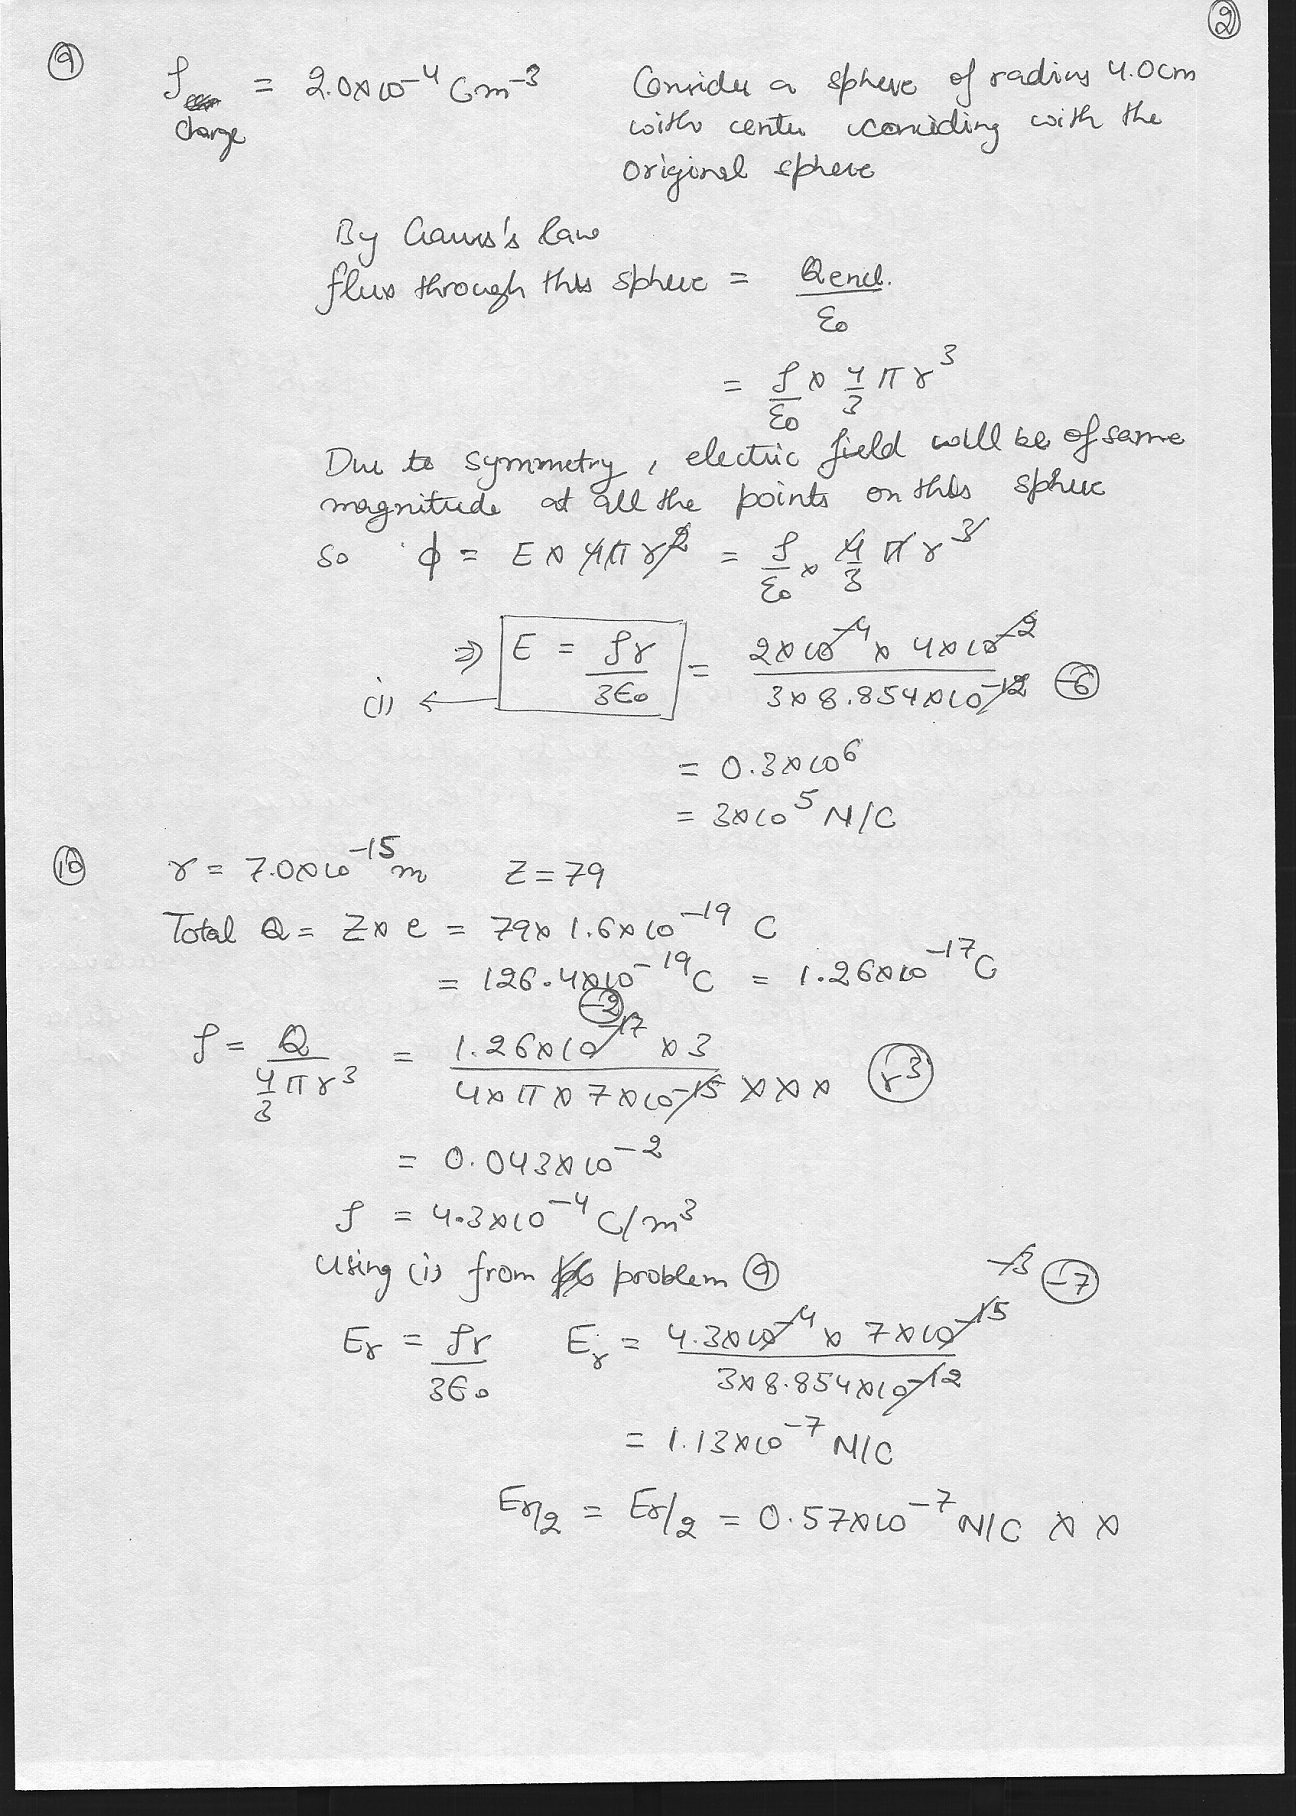 ②
⑨ ρ charge = 2.0×10⁻⁴ Cm⁻³ Consider a sphere of radius 4.0cm
with center conciding with the
original sphere
By Gauss's law
flux through this sphere = Qencl. / ε₀
= ρ/ε₀ × 4/3 π r³
Due to symmetry, electric field will be of same
magnitude at all the points on this sphere
so ϕ = E × 4π r² = ρ/ε₀ × 4/3 π r³
⇒ E = ρr / 3ε₀ = 2×10⁻⁴ × 4×10⁻² / 3×8.854×10⁻¹² (-6)
(i) ←
= 0.3×10⁶
= 3×10⁵ N/C
⑩ r = 7.0×10⁻¹⁵ m Z = 79
Total Q = Z× e = 79× 1.6×10⁻¹⁹ C
= 126.4×10⁻¹⁹ C = 1.26×10⁻¹⁷ C
ρ = Q / 4/3 π r³ = 1.26×10⁻¹⁷ (-2) × 3 / 4× π × 7×10⁻¹⁵ × × × (r³)
= 0.043×10⁻²
ρ = 4.3×10⁻⁴ C/m³
Using (i) from problem ⑨
-3 (-7)
Er = ρr / 3ε₀ Er = 4.3×10⁻⁴ × 7×10⁻¹⁵ / 3×8.854×10⁻¹²
= 1.13×10⁻⁷ N/C
Er/2 = Er/2 = 0.57×10⁻⁷ N/C × ×